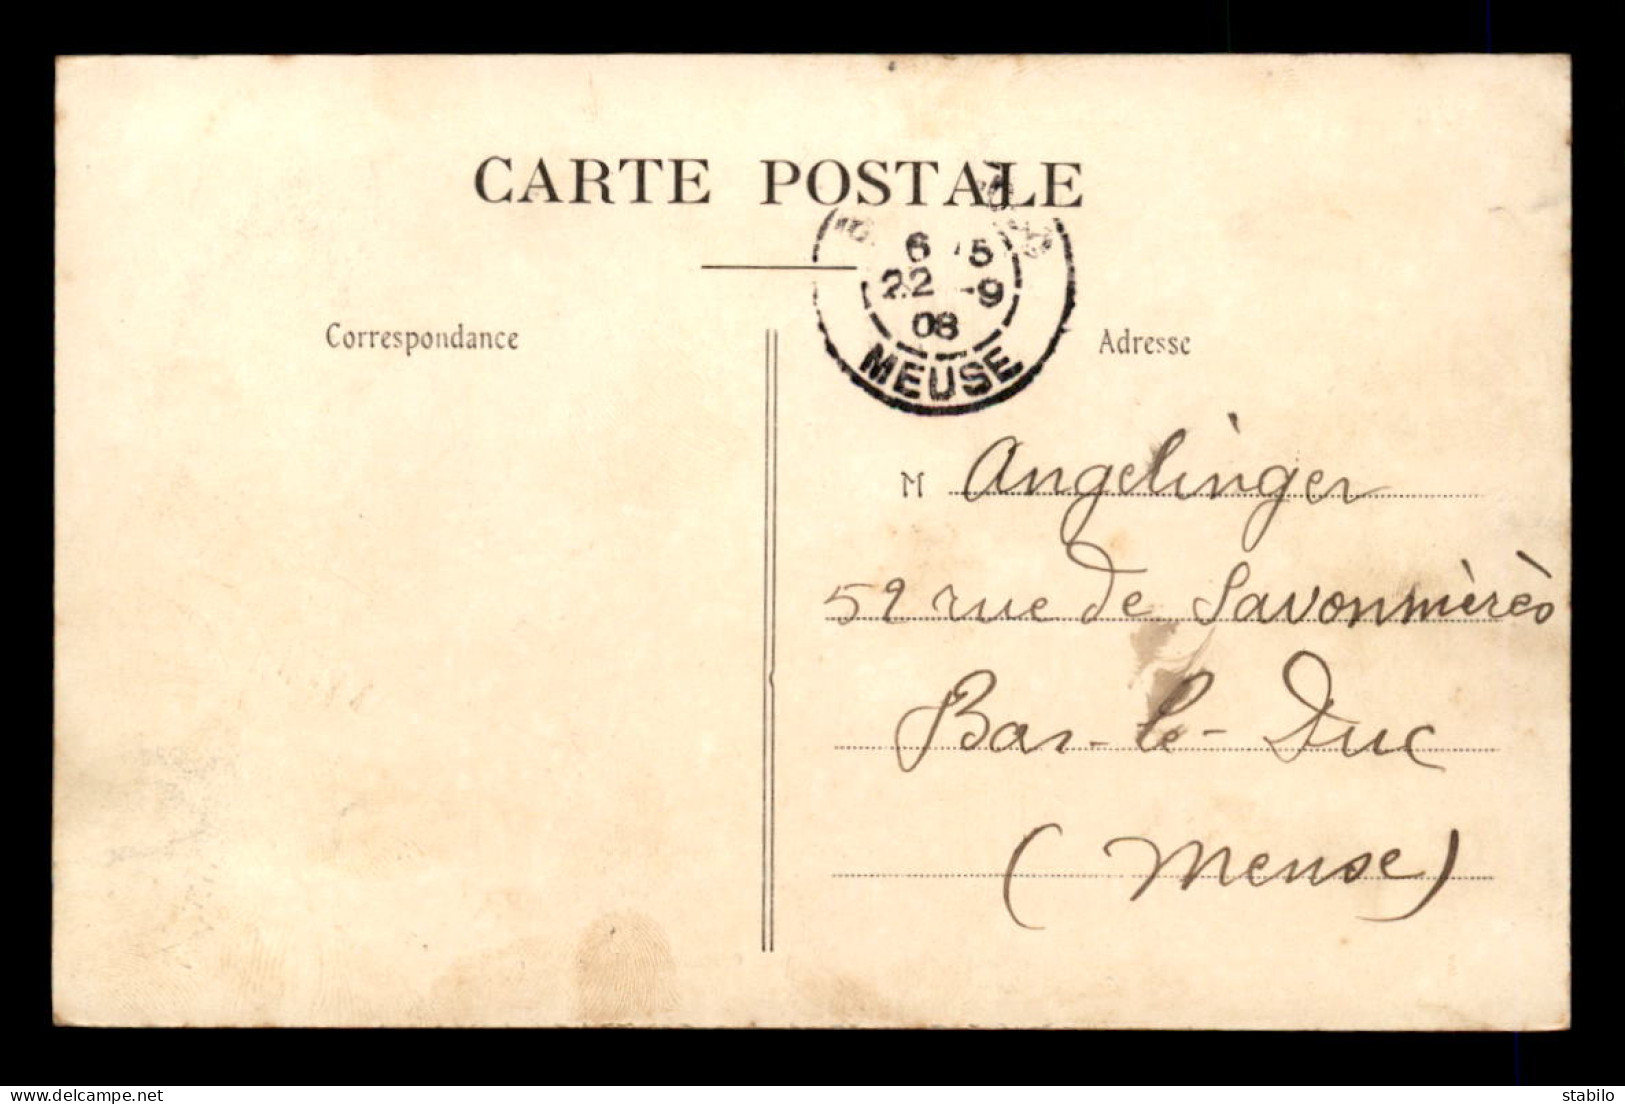 CARTE POSTALE
6 5
22 -9
08
MEUSE
Correspondance
Adresse
M Angelinger
52 rue de Savonnières
Bar-le-Duc
(Meuse)
delcampe.net
stabilo